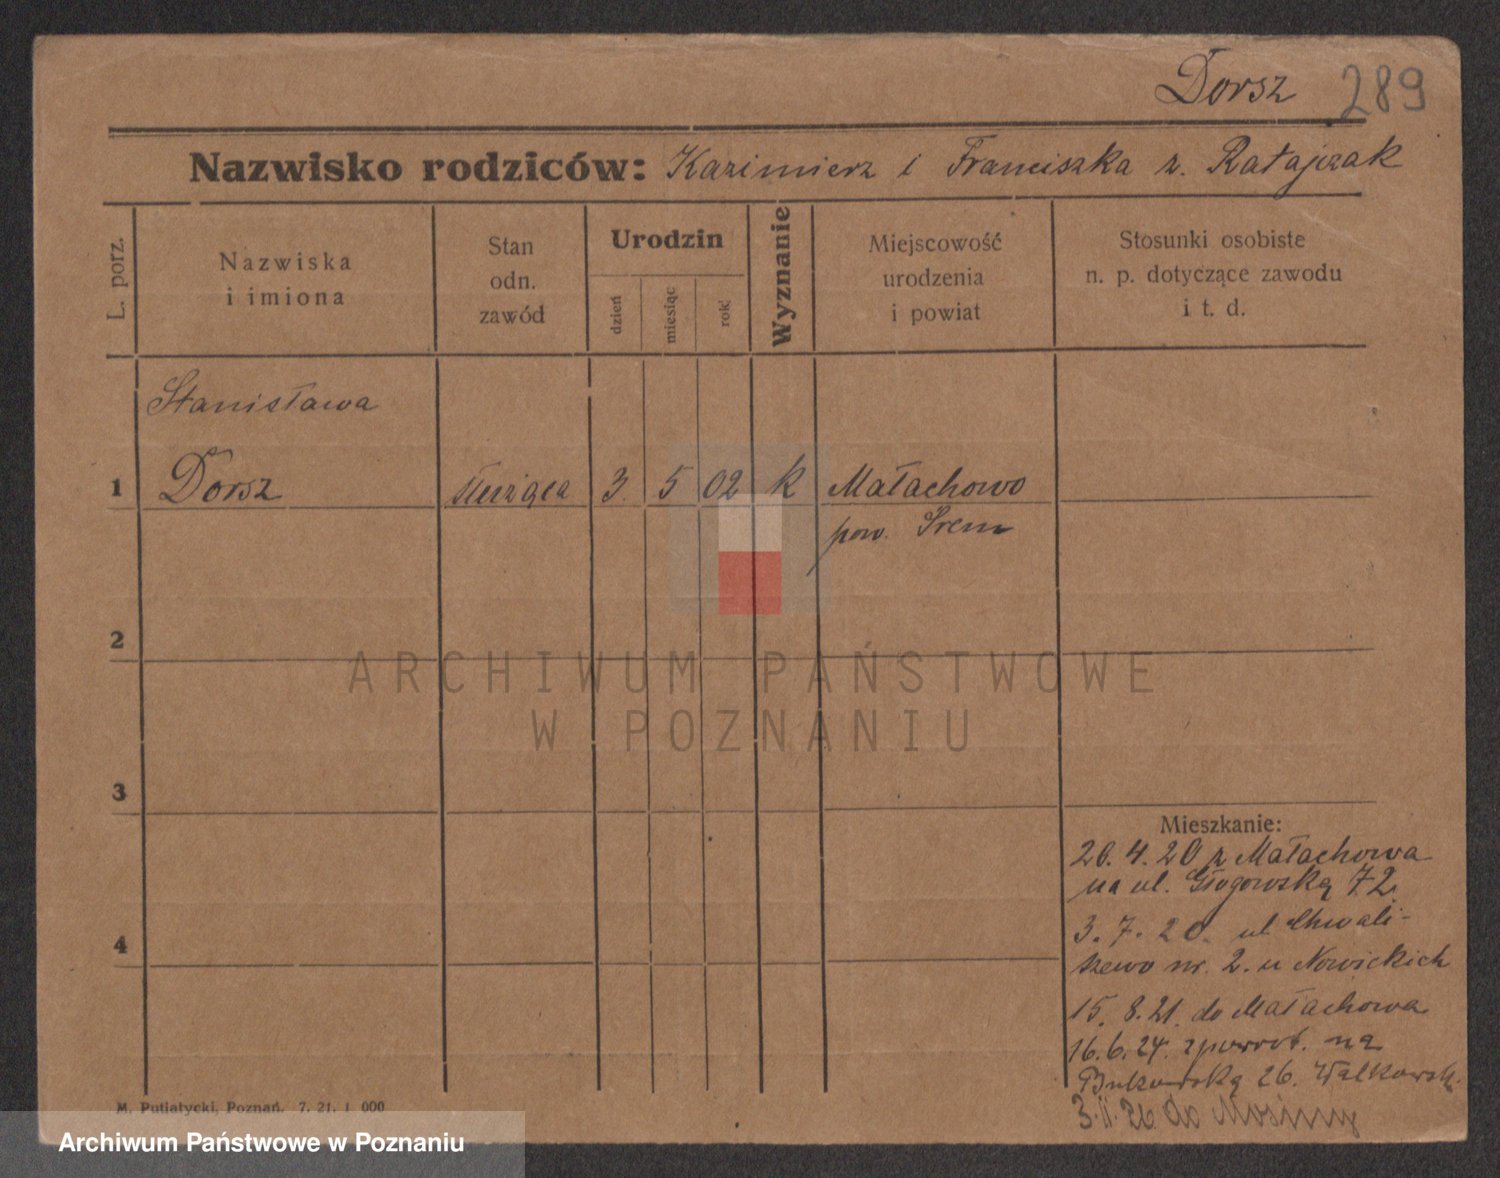 Dorsz 289
Nazwisko rodziców: Kazimierz i Franciszka z. Ratajczak
L. porz.
Nazwiska
i imiona
Stan
odn.
zawód
Urodzin
dzień
miesiąc
rok
Wyznanie
Miejscowość
urodzenia
i powiat
Stosunki osobiste
n. p. dotyczące zawodu
i t. d.
Stanisława
1 Dorsz służąca 3. 5 02 k Małachowo
pow. Śrem
2
3
4
Mieszkanie:
20. 4. 20 z Małachowa
na ul. Głogowską 72
3. 7. 20. ul Chwali-
szewo nr. 2. u Nowickich
15. 8. 21. do Małachowa
16. 6. 24. zpowrot. na
Bukowską 26. Walkowsk.
3. II. 26. do Mosiny
M. Putiatycki, Poznań. 7. 21. 1 000
ARCHIWUM PAŃSTWOWE
W POZNANIU
Archiwum Państwowe w Poznaniu